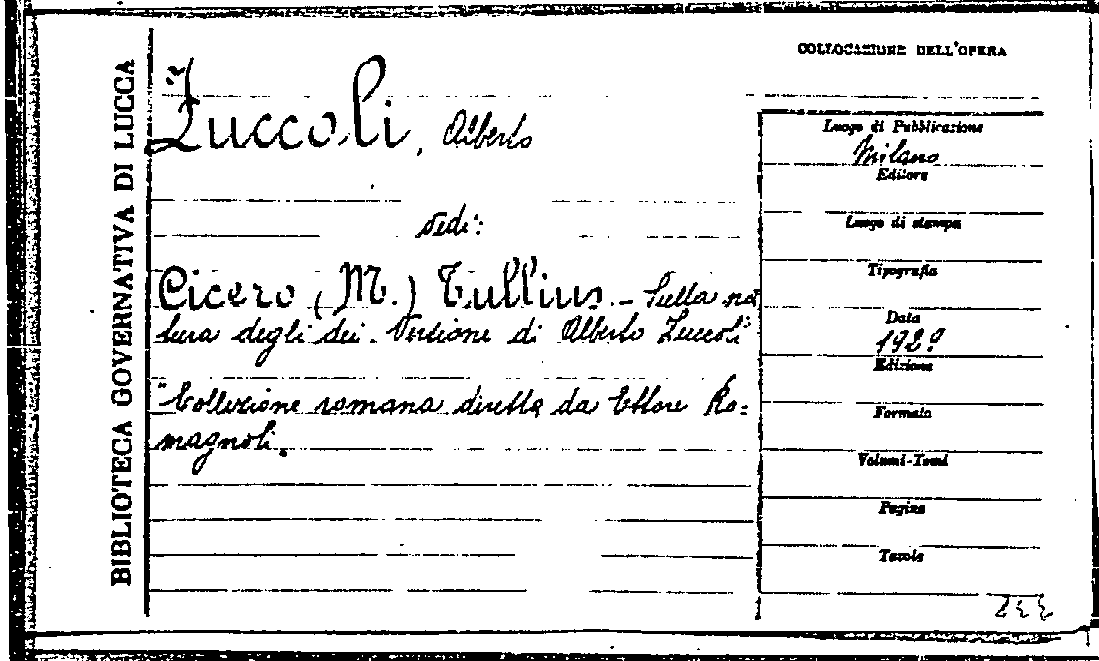 BIBLIOTECA GOVERNATIVA DI LUCCA
Zuccoli, Alberto
vedi:
Cicero (M.) Tullius. - Sulla na
tura degli dei. Versione di Alberto Zuccoli
"Collezione romana diretta da Ettore Ro=
magnoli.
COLLOCAZIONE DELL'OPERA
Luogo di Pubblicazione
Milano
Editore
Luogo di stampa
Tipografia
Data
1929
Edizione
Formato
Volumi-Tomi
Pagine
Tavole